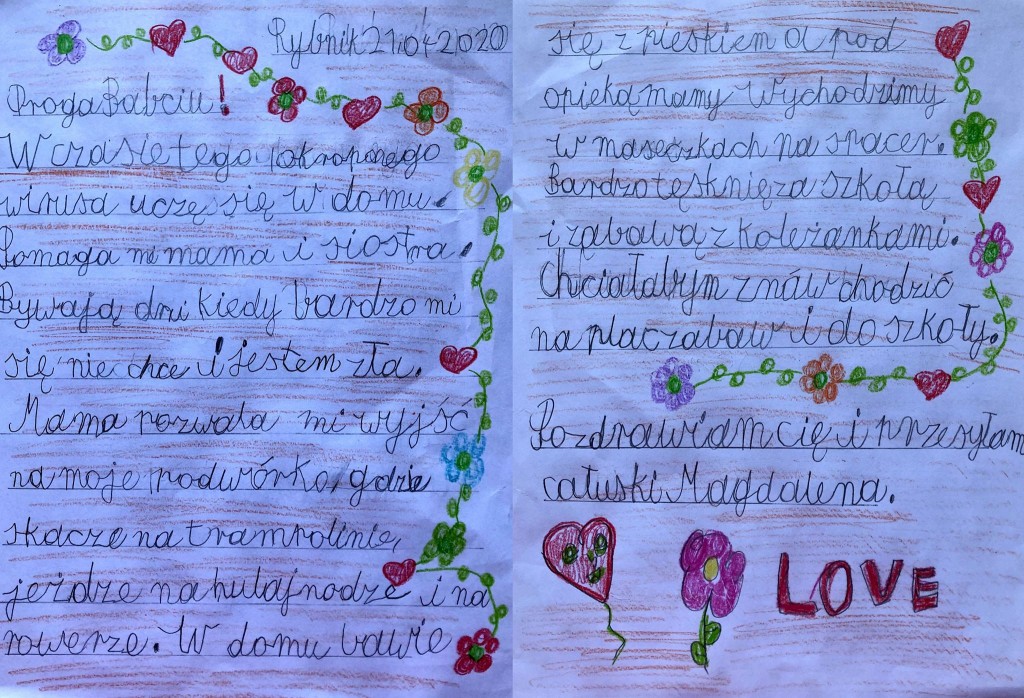 Rybnik 21.04.2020
Droga Babciu!
W czasie tego okropnego
wirusa uczę się w domu.
Pomaga mi mama i siostra.
Bywają dni kiedy bardzo mi
się nie chce i jestem zła.
Mama pozwala mi wyjść
na moje podwórko, gdzie
skaczę na trampolinie,
jeżdże na hulajnodze i na
rowerze. W domu bawie
się z pieskiem a pod
opieką mamy wychodzimy
w maseczkach na spacer.
Bardzo tęsknię za szkołą
i zabawą z koleżankami.
Chciałabym znów chodzić
na plac zabaw i do szkoły.
Pozdrawiam cię i przesyłam
całuski Magdalena.
LOVE